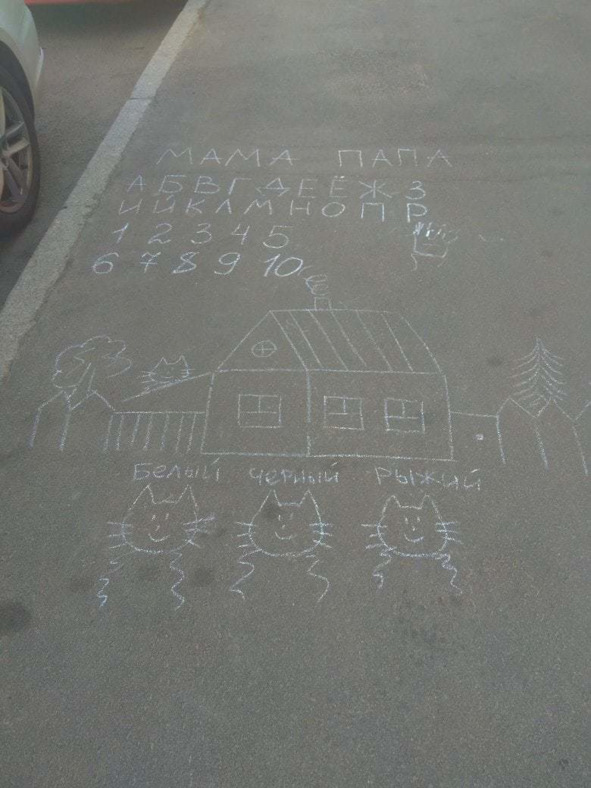 МАМА ПАПА
АБВГДЕЁЖЗ
ИЙКЛМНОПР
1 2 3 4 5
6 7 8 9 10
Белый черный рыжий